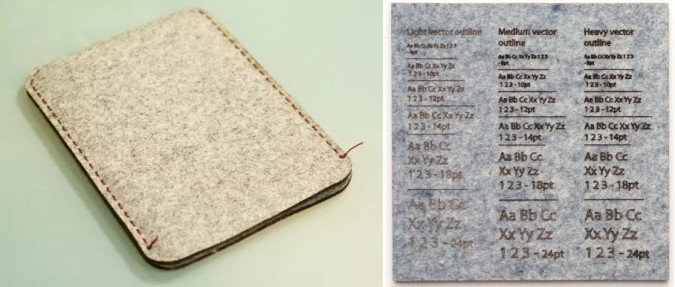 Light vector outline
Aa Bb Cc Xx Yy Zz 1 2 3
- 8pt
Aa Bb Cc Xx Yy Zz
1 2 3 - 10pt
Aa Bb Cc Xx Yy Zz
1 2 3 - 12pt
Aa Bb Cc Xx Yy Zz
1 2 3 - 14pt
Aa Bb Cc
Xx Yy Zz
1 2 3 - 18pt
Aa Bb Cc
Xx Yy Zz
1 2 3 - 24pt
Medium vector
outline
Aa Bb Cc Xx Yy Zz 1 2 3
- 8pt
Aa Bb Cc Xx Yy Zz
1 2 3 - 10pt
Aa Bb Cc Xx Yy Zz
1 2 3 - 12pt
Aa Bb Cc Xx Yy Zz
1 2 3 - 14pt
Aa Bb Cc
Xx Yy Zz
1 2 3 - 18pt
Aa Bb Cc
Xx Yy Zz
1 2 3 - 24pt
Heavy vector
outline
Aa Bb Cc Xx Yy Zz 1 2 3
- 8pt
Aa Bb Cc Xx Yy Zz
1 2 3 - 10pt
Aa Bb Cc Xx Yy Zz
1 2 3 - 12pt
Aa Bb Cc Xx Yy Zz
1 2 3 - 14pt
Aa Bb Cc
Xx Yy Zz
1 2 3 - 18pt
Aa Bb Cc
Xx Yy Zz
1 2 3 - 24pt